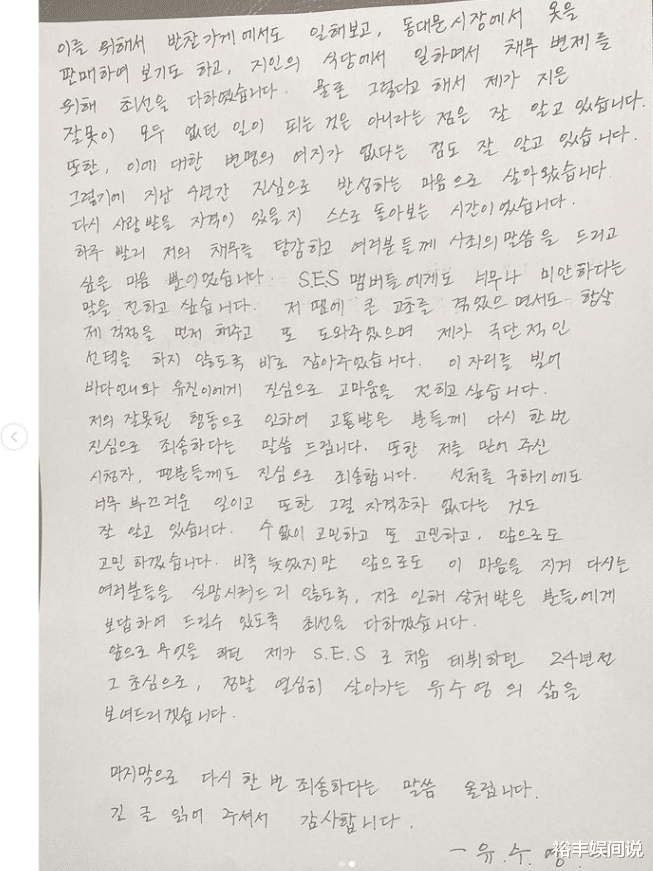 이를 위해서 반찬가게에서도 일해보고, 동대문시장에서 옷을
판매하여 보기도 하고, 지인의 식당에서 일하면서 채무 변제를
위해 최선을 다하였습니다. 물론 그렇다고 해서 제가 지은
잘못이 모두 없던 일이 되는 것은 아니라는 점은 잘 알고 있습니다.
또한, 이에 대한 변명의 여지가 없다는 점도 잘 알고 있습니다.
그렇기에 지난 4년간 진심으로 반성하는 마음으로 살아왔습니다.
다시 사랑받을 자격이 있을지 스스로 돌아보는 시간이었습니다.
하루 빨리 저의 채무를 탕감하고 여러분들께 사죄의 말씀을 드리고
싶은 마음 뿐이었습니다. S.E.S 멤버들에게도 너무나 미안하다는
말을 전하고 싶습니다. 저 땜에 큰 고초를 겪었으면서도 항상
제 걱정을 먼저 해주고 또 도와주었으며 제가 극단적인
선택을 하지 않도록 바로 잡아주었습니다. 이 자리를 빌어
바다언니와 유진이에게 진심으로 고마움을 전하고 싶습니다.
저의 잘못된 행동으로 인하여 고통받은 분들께 다시 한번
진심으로 죄송하다는 말씀 드립니다. 또한 저를 믿어 주신
시청자, 팬분들께도 진심으로 죄송합니다. 선처를 구하기에도
너무 부끄러운 일이고 또한 그럴 자격조차 없다는 것도
잘 알고 있습니다. 수없이 고민하고 또 고민하고, 앞으로도
고민 하겠습니다. 비록 늦었지만 앞으로도 이 마음을 지켜 다시는
여러분들을 실망시켜드리 않도록, 저로 인해 상처받은 분들에게
보답하여 드릴수 있도록 최선을 다하겠습니다.
앞으로 무엇을 하던 제가 S.E.S 로 처음 데뷔하던 24년전
그 초심으로, 정말 열심히 살아가는 유수영의 삶을
보여드리겠습니다.
마지막으로 다시 한 번 죄송하다는 말씀 올립니다.
긴 글 읽어 주셔서 감사합니다.
- 유.수.영.
裕丰娱间说